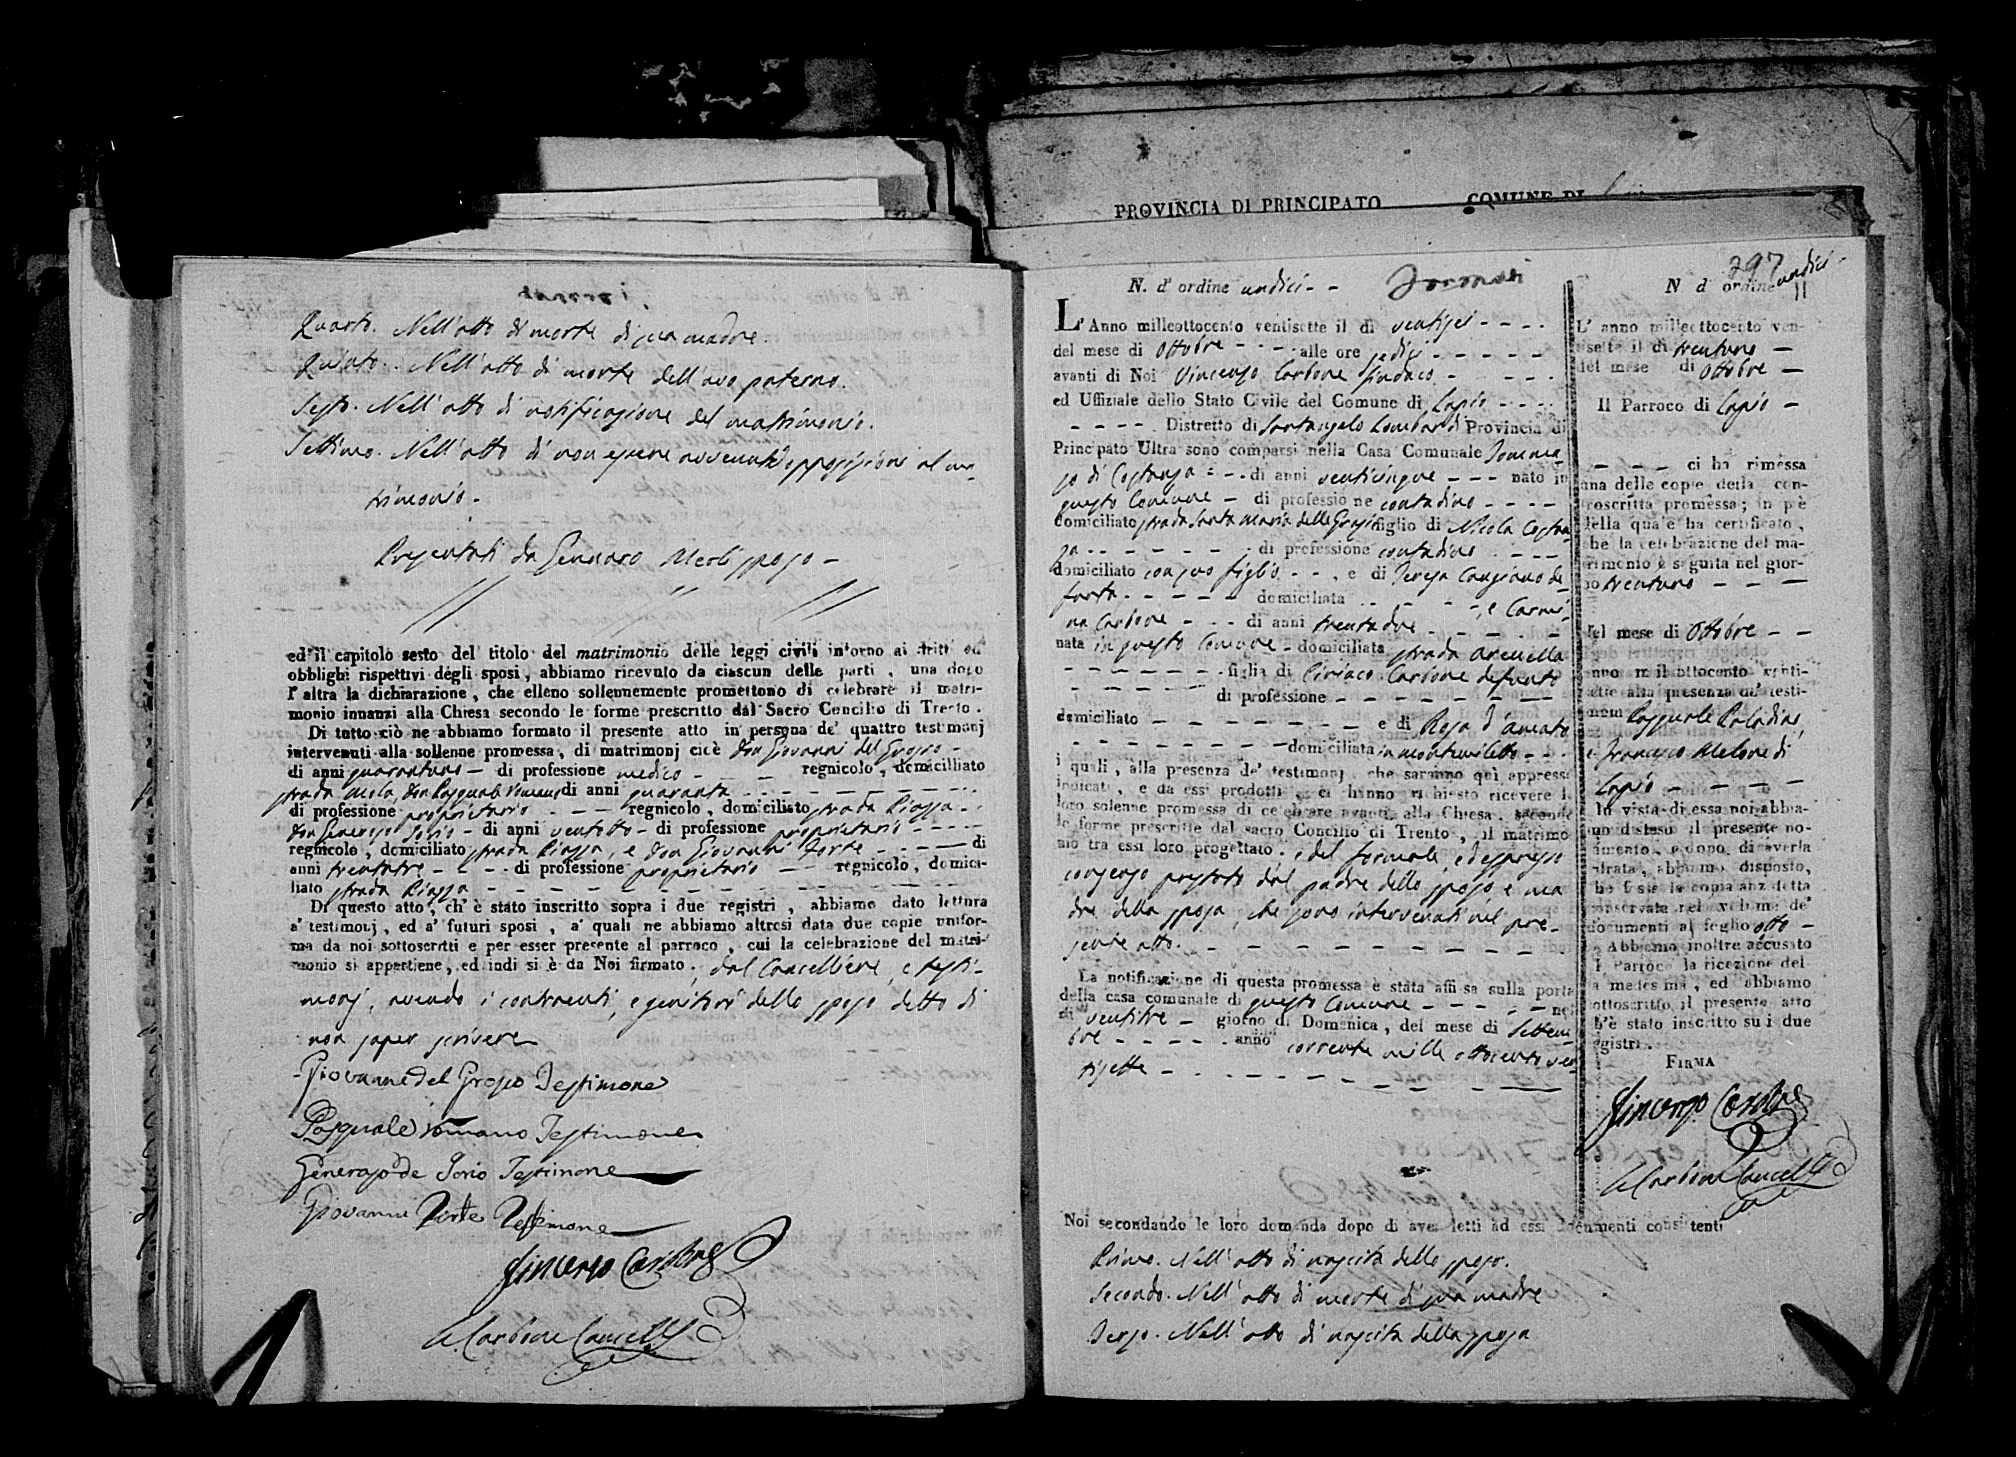 Quarto. Nell'atto di morte di sua madre.
Quinto. Nell'atto di morte dell'avo paterno.
Sesto. Nell'atto di notificazione del matrimonio.
Settimo. Nell'atto di non essere avvenute opposizioni al ma
trimonio.
Presentati da Gennaro Meoli sposo
ed il capitolo sesto del titolo del matrimonio delle leggi civili intorno ai dritti ed
obblighi rispettivi degli sposi, abbiamo ricevuto da ciascun delle parti, una dopo
l'altra la dichiarazione, che elleno sollennemente promettono di celebrare il matri-
monio innanzi alla Chiesa secondo le forme prescritto dal Sacro Concilio di Trento.
Di tutto ciò ne abbiamo formato il presente atto in persona de' quattro testimonj
intervenuti alla sollenne promessa, di matrimonj cicè don Giovanni del Grosso
di anni quarantuno di professione medico regnicolo, domicilliato
strada Mela, don Pasquale Romano di anni quaranta
di professione proprietario regnicolo, domiciliato strada Piazza
don Generoso Iorio di anni ventotto di professione proprietario
regnicolo, domiciliato strada Piazza, e don Giovanni Forte di
anni trentatre di professione proprietario regnicolo, domici-
liato strada Piazza
Di questo atto, ch'è stato inscritto sopra i due registri, abbiamo dato lettura
a' testimonj, ed a' futuri sposi, a' quali ne abbiamo altresi data due copie unifor-
ma da noi sottoscritti e per esser presente al parroco, cui la celebrazione del matri-
monio si appartiene, ed indi si è da Noi firmato, dal Cancelliere, e testi-
monj, avendo i contraenti, e genitori dello sposo detto di
non saper scrivere
Giovanne del Grosso Testimone
Pasquale Romano Testimone
Generoso de Iorio Testimone
Giovanni Forte Testimone
Vincenzo Carbone
Carbone Cancell
PROVINCIA DI PRINCIPATO COMUNE DI
N. d'ordine undici
L'Anno milleottocento ventisette il di ventisei
del mese di Ottobre alle ore sedici
avanti di Noi Vincenzo Carbone Sindaco
ed Uffiziale dello Stato Civile del Comune di Lapio
Distretto di Santangelo Lombardi Provincia di
Principato Ultra sono comparsi nella Casa Comunale Domeni-
go di Costanza di anni venticinque nato in
questo Comune di professione contadino
domiciliato strada Santa Maria delle Grazie figlio di Nicola Costan
za di professione contadino
domiciliato con suo figlio, e di Teresa Cangiano de
fonta domiciliata, e Carmi
na Carbone di anni trentadue
nata in questo Comune domiciliata strada Arenella
figlia di Ciriaco Carbone defunto
di professione
domiciliato e di Rosa d'Amato
domiciliata in Montemiletto
i quali, alla presenza de' testimonj che saranno quì appresso
indicati, e da essi prodotti, ci hanno richiesto ricevere la
loro solenne promessa di celebrare avanti alla Chiesa, secondo
le forme prescritte dal sacro Concilio di Trento, il matrimo
nio tra essi loro progettato. e del formale, ed espresso
consenso prestato dal padre dello sposo e ma
dre della sposa, che sono intervenuti nel pre-
sente atto.
La notificazione di questa promessa è stata affissa sulla porta
della casa comunale di questo Comune nel
di ventitre giorno di Domenica, del mese di Settem
bre anno corrente mille ottocento ven
tisette
Noi secondando le loro domanda dopo di aver letti ad essi documenti consistenti
Primo. Nell'atto di nascita dello sposo.
Secondo. Nell'atto di morte di sua madre
Terzo. Nell'atto di nascita della sposa
297
N d'ordine undici
11
L'anno milleottocento ven-
tisette il di trentuno
del mese di Ottobre
Il Parroco di Lapio
ci ha rimessa
una delle copie della con-
troscritta promessa; in piè
della quale ha certificato,
che la celebrazione del ma-
trimonio è seguita nel gior-
no trentuno
del mese di Ottobre
anno milleottocento venti-
sette alla presenza de' testi-
monj Pasquale Paladino
e Francesco Melone di
Lapio
In vista di essa noi abbia-
mo disteso il presente no-
tamento, e dopo di averla
cifrata, abbiamo disposto,
che fosse la copia anzidetta
conservata nel volume de'
documenti al foglio otto
Abbiamo inoltre accusato
al Parroco la ricezione del-
la medesima, ed abbiamo
sottoscritto il presente atto
ch'è stato inscritto su i due
registri.
FIRMA
Vincenzo Carbone
Carbone Cancell